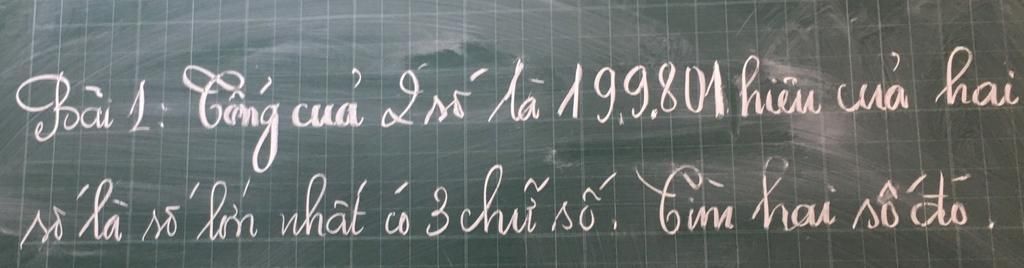 Bài 1: Tổng của 2 số là 199.801 hiệu của hai
số là số lớn nhất có 3 chữ số. Tìm hai số đó.